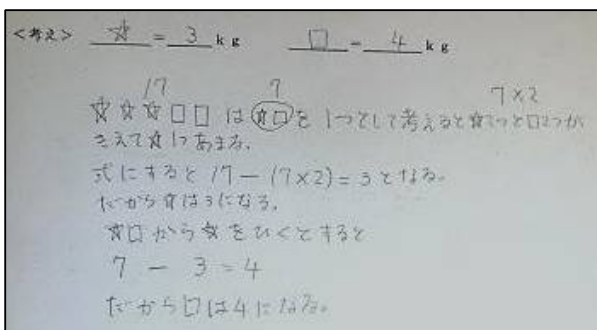 <考え> ☆ = 3 kg □ = 4 kg
17 7 7×2
☆☆☆□□は☆□を1つとして考えると☆2つと□2つが
きえて☆1つあまる。
式にすると17-(7×2)=3となる。
だから☆は3になる。
☆□から☆をひくとすると
7 - 3 = 4
だから□は4になる。